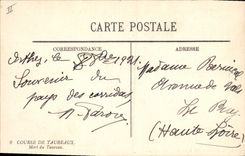 II
CARTE POSTALE
CORRESPONDANCE
ADRESSE
le 1921
Souvenir du
pays des corridas
Madame
Avenue de
Le Puy
(Haute Loire)
9 COURSE DE TAUREAUX.
Mort du Taureau.